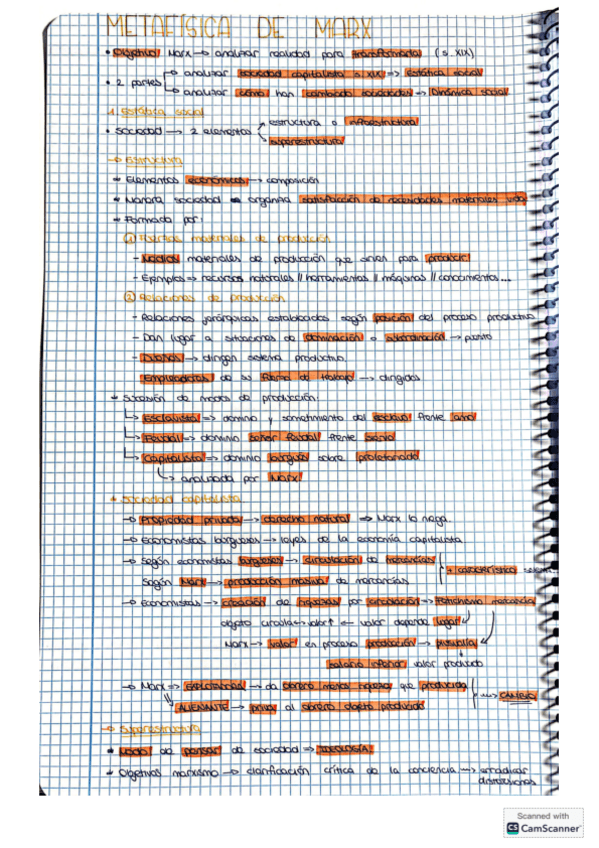 METAFÍSICA DE MARX
• Objetivo Marx → analizar realidad para transformarla (s. XIX)
• 2 partes → analizar sociedad capitalista s. XIX ⇒ estática social
→ analizar cómo han cambiado sociedades ⇒ Dinámica social
1. Estática social
• Sociedad → 2 elementos estructura o infraestructura
superestructura
→ Estructura
Elementos económicos → composición
Manera sociedad organiza satisfacción de necesidades materiales vida
Formada por:
① Fuerzas materiales de producción
- Medios materiales de producción que sirven para producir
- Ejemplos ⇒ recursos naturales // herramientas // máquinas // conocimientos...
② Relaciones de producción
- Relaciones jerárquicas establecidas según posición del proceso productivo
- Dan lugar a situaciones de dominación o subordinación → puesto
- Dueños → dirigen sistema productivo
Empleadores de su fuerza de trabajo → dirigidos
Sucesión de modos de producción:
↳ Esclavista ⇒ dominio y sometimiento del esclavo frente amo
↳ Feudal ⇒ dominio señor feudal frente siervo
↳ Capitalista ⇒ dominio burgués sobre proletariado
↳ analizada por Marx
Sociedad capitalista
→ Propiedad privada → derecho natural ⇒ Marx lo niega.
→ Economistas burgueses → leyes de la economía capitalista
→ Según economistas burgueses → circulación de mercancías
Según Marx → producción masiva de mercancías
+ característico
→ Economistas → creación de riquezas por circulación ⇒ Fetichismo mercancía
objeto circula → valor↑ ← valor depende lugar
Marx → valor en proceso producción → plusvalía
salario inferior valor producido
→ Marx ⇒ EXPLOTADORA → da obrero menos riqueza que producida
ALIENANTE → priva al obrero objeto producido
⇒ CAMBIO
→ Superestructura
Modo de pensar de sociedad ⇒ IDEOLOGÍA
Objetivos marxismo → clarificación crítica de la conciencia → erradicar
distorsiones
Scanned with
CS CamScanner